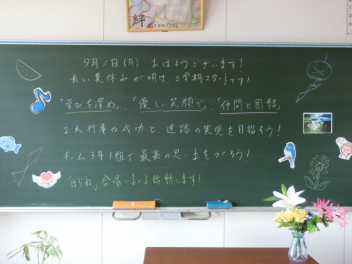 絆
9月1日(月) おはようございます!
長い夏休みが明け、2学期スタートです!
「学びを深め」、「優しい笑顔で」、「仲間と団結」
2大行事の成功と、進路の実現を目指そう!
チーム3年1組で最高の思い出をつくろう!
合言葉に始動します!